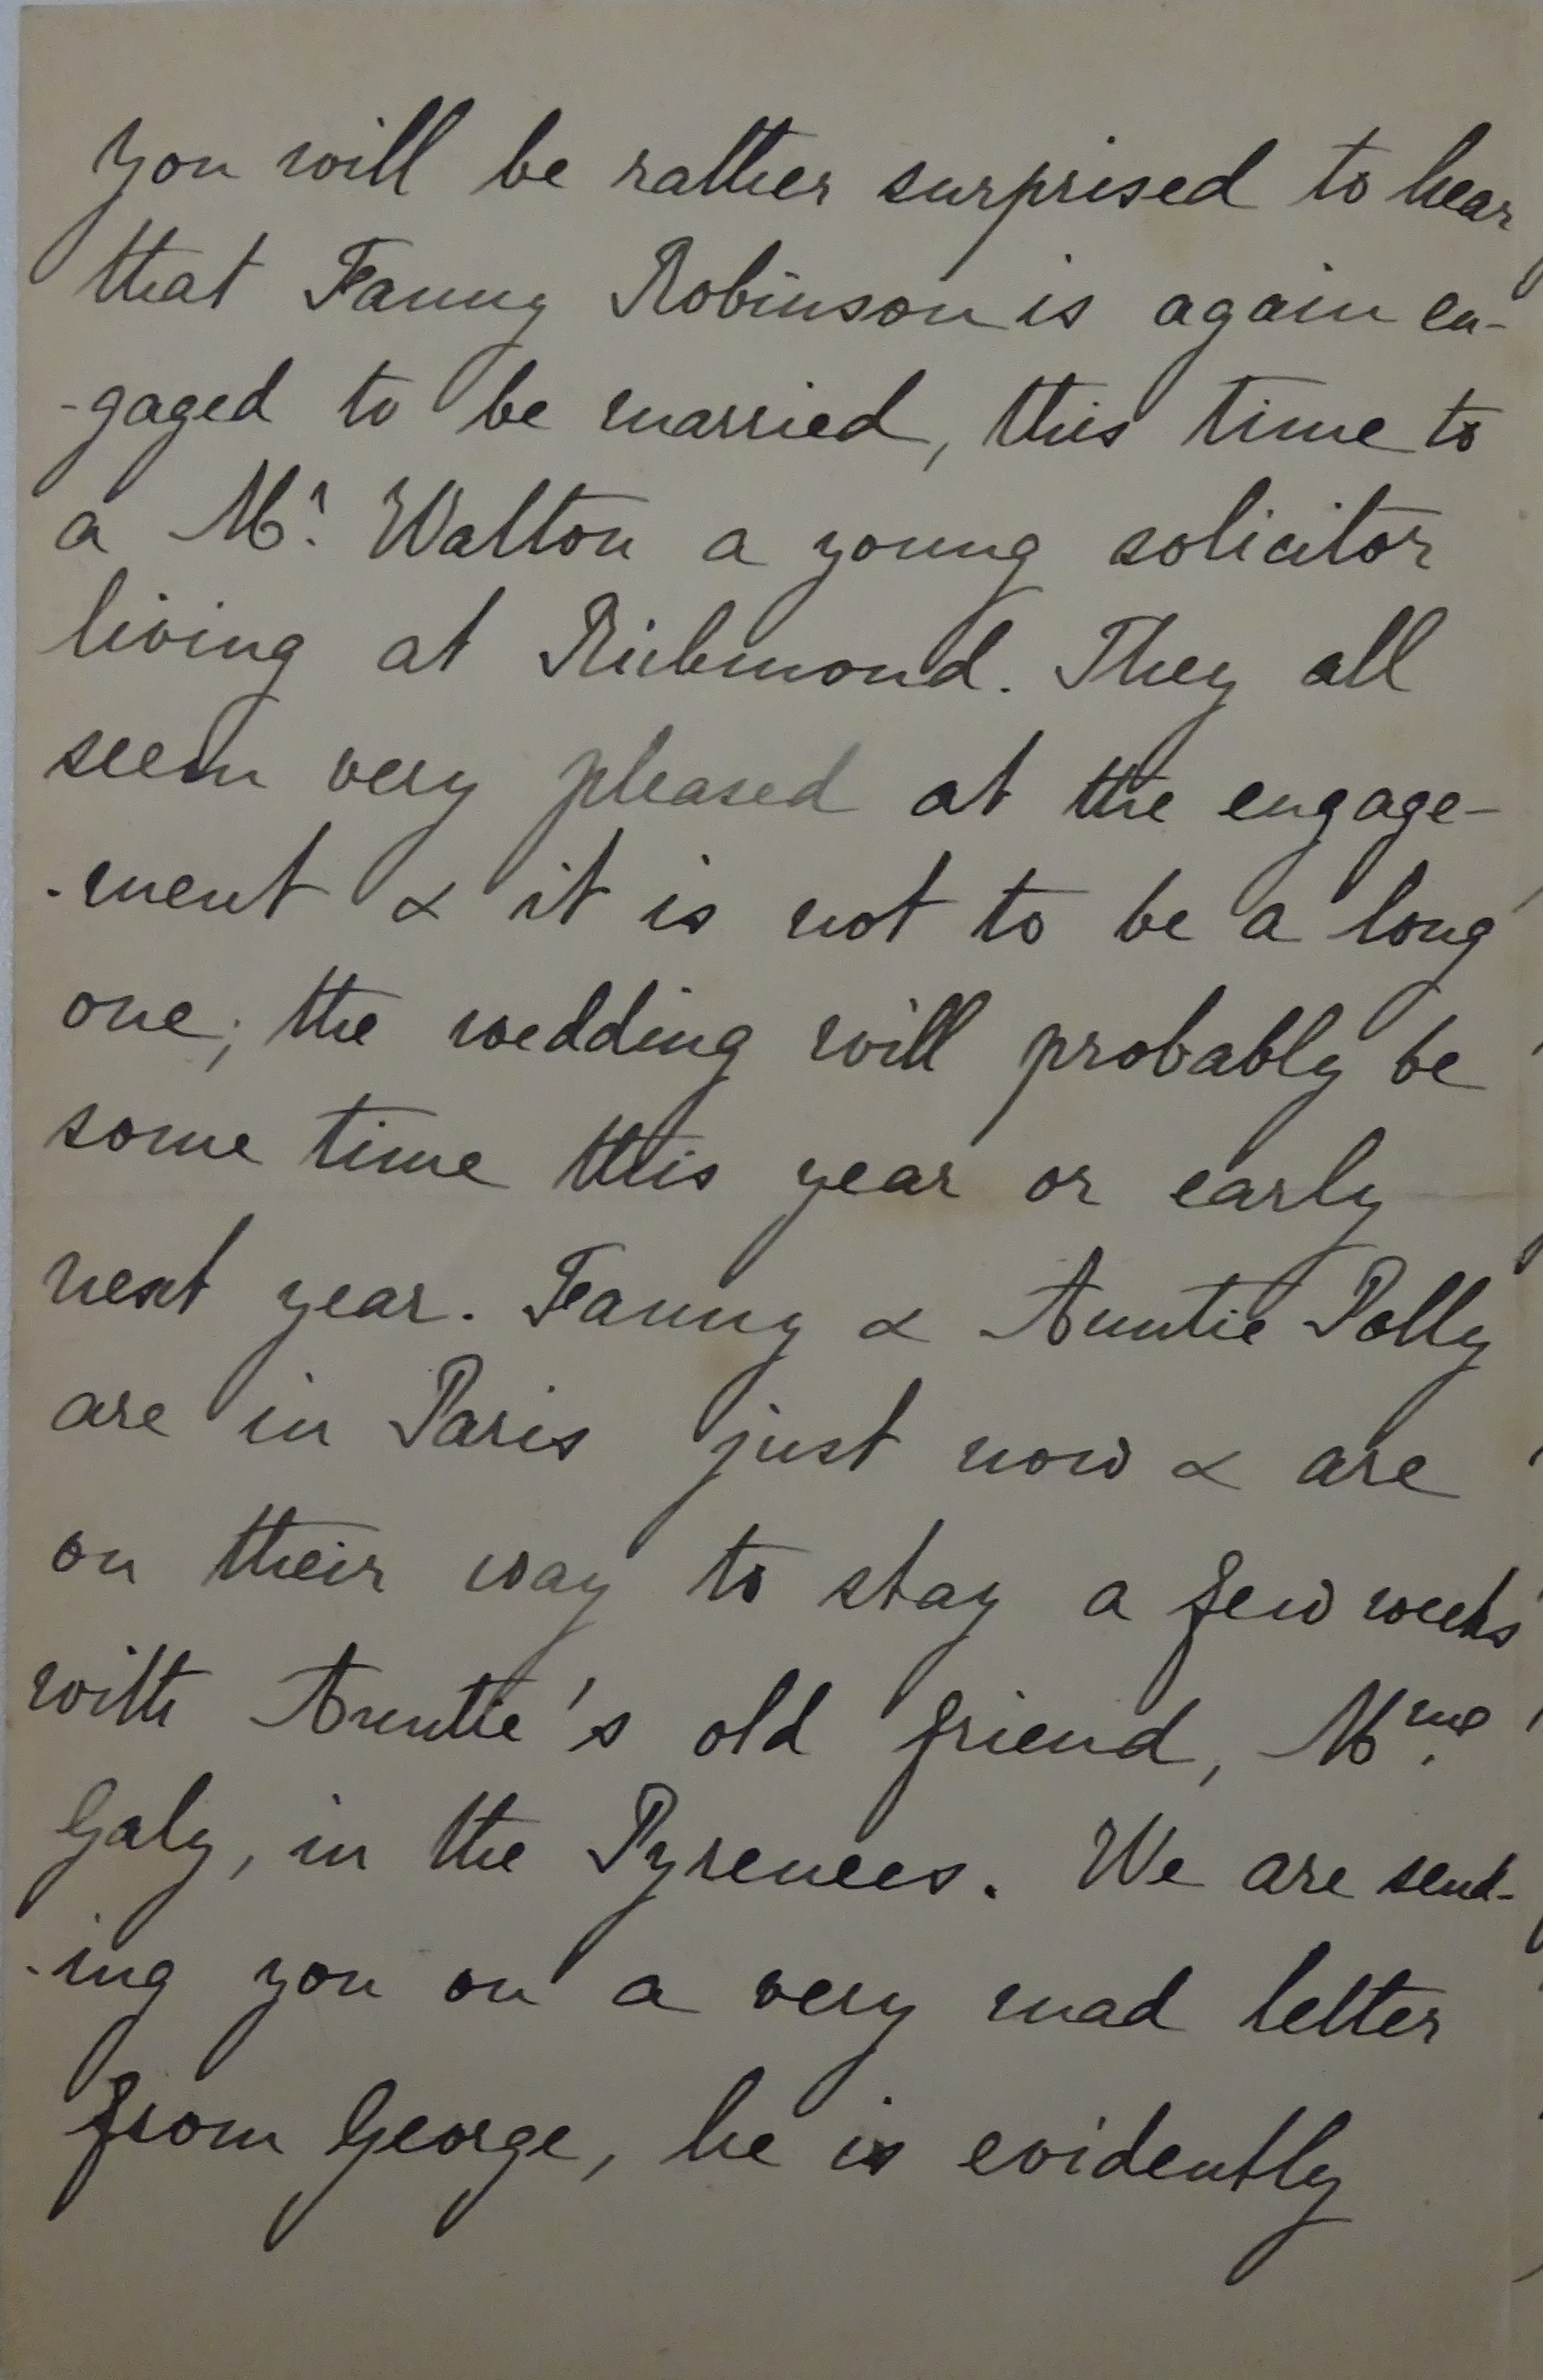 you will be rather surprised to hear
that Fanny Robinson is again en-
-gaged to be married, this time to
a Mr. Walton a young solicitor
living at Richmond. They all
seem very pleased at the engage-
-ment & it is not to be a long
one; the wedding will probably be
some time this year or early
next year. Fanny & Auntie Polly
are in Paris just now & are
on their way to stay a few weeks
with Auntie's old friend, Mme.
Galy, in the Pyrenees. We are send-
-ing you on a very mad letter
from George, he is evidently